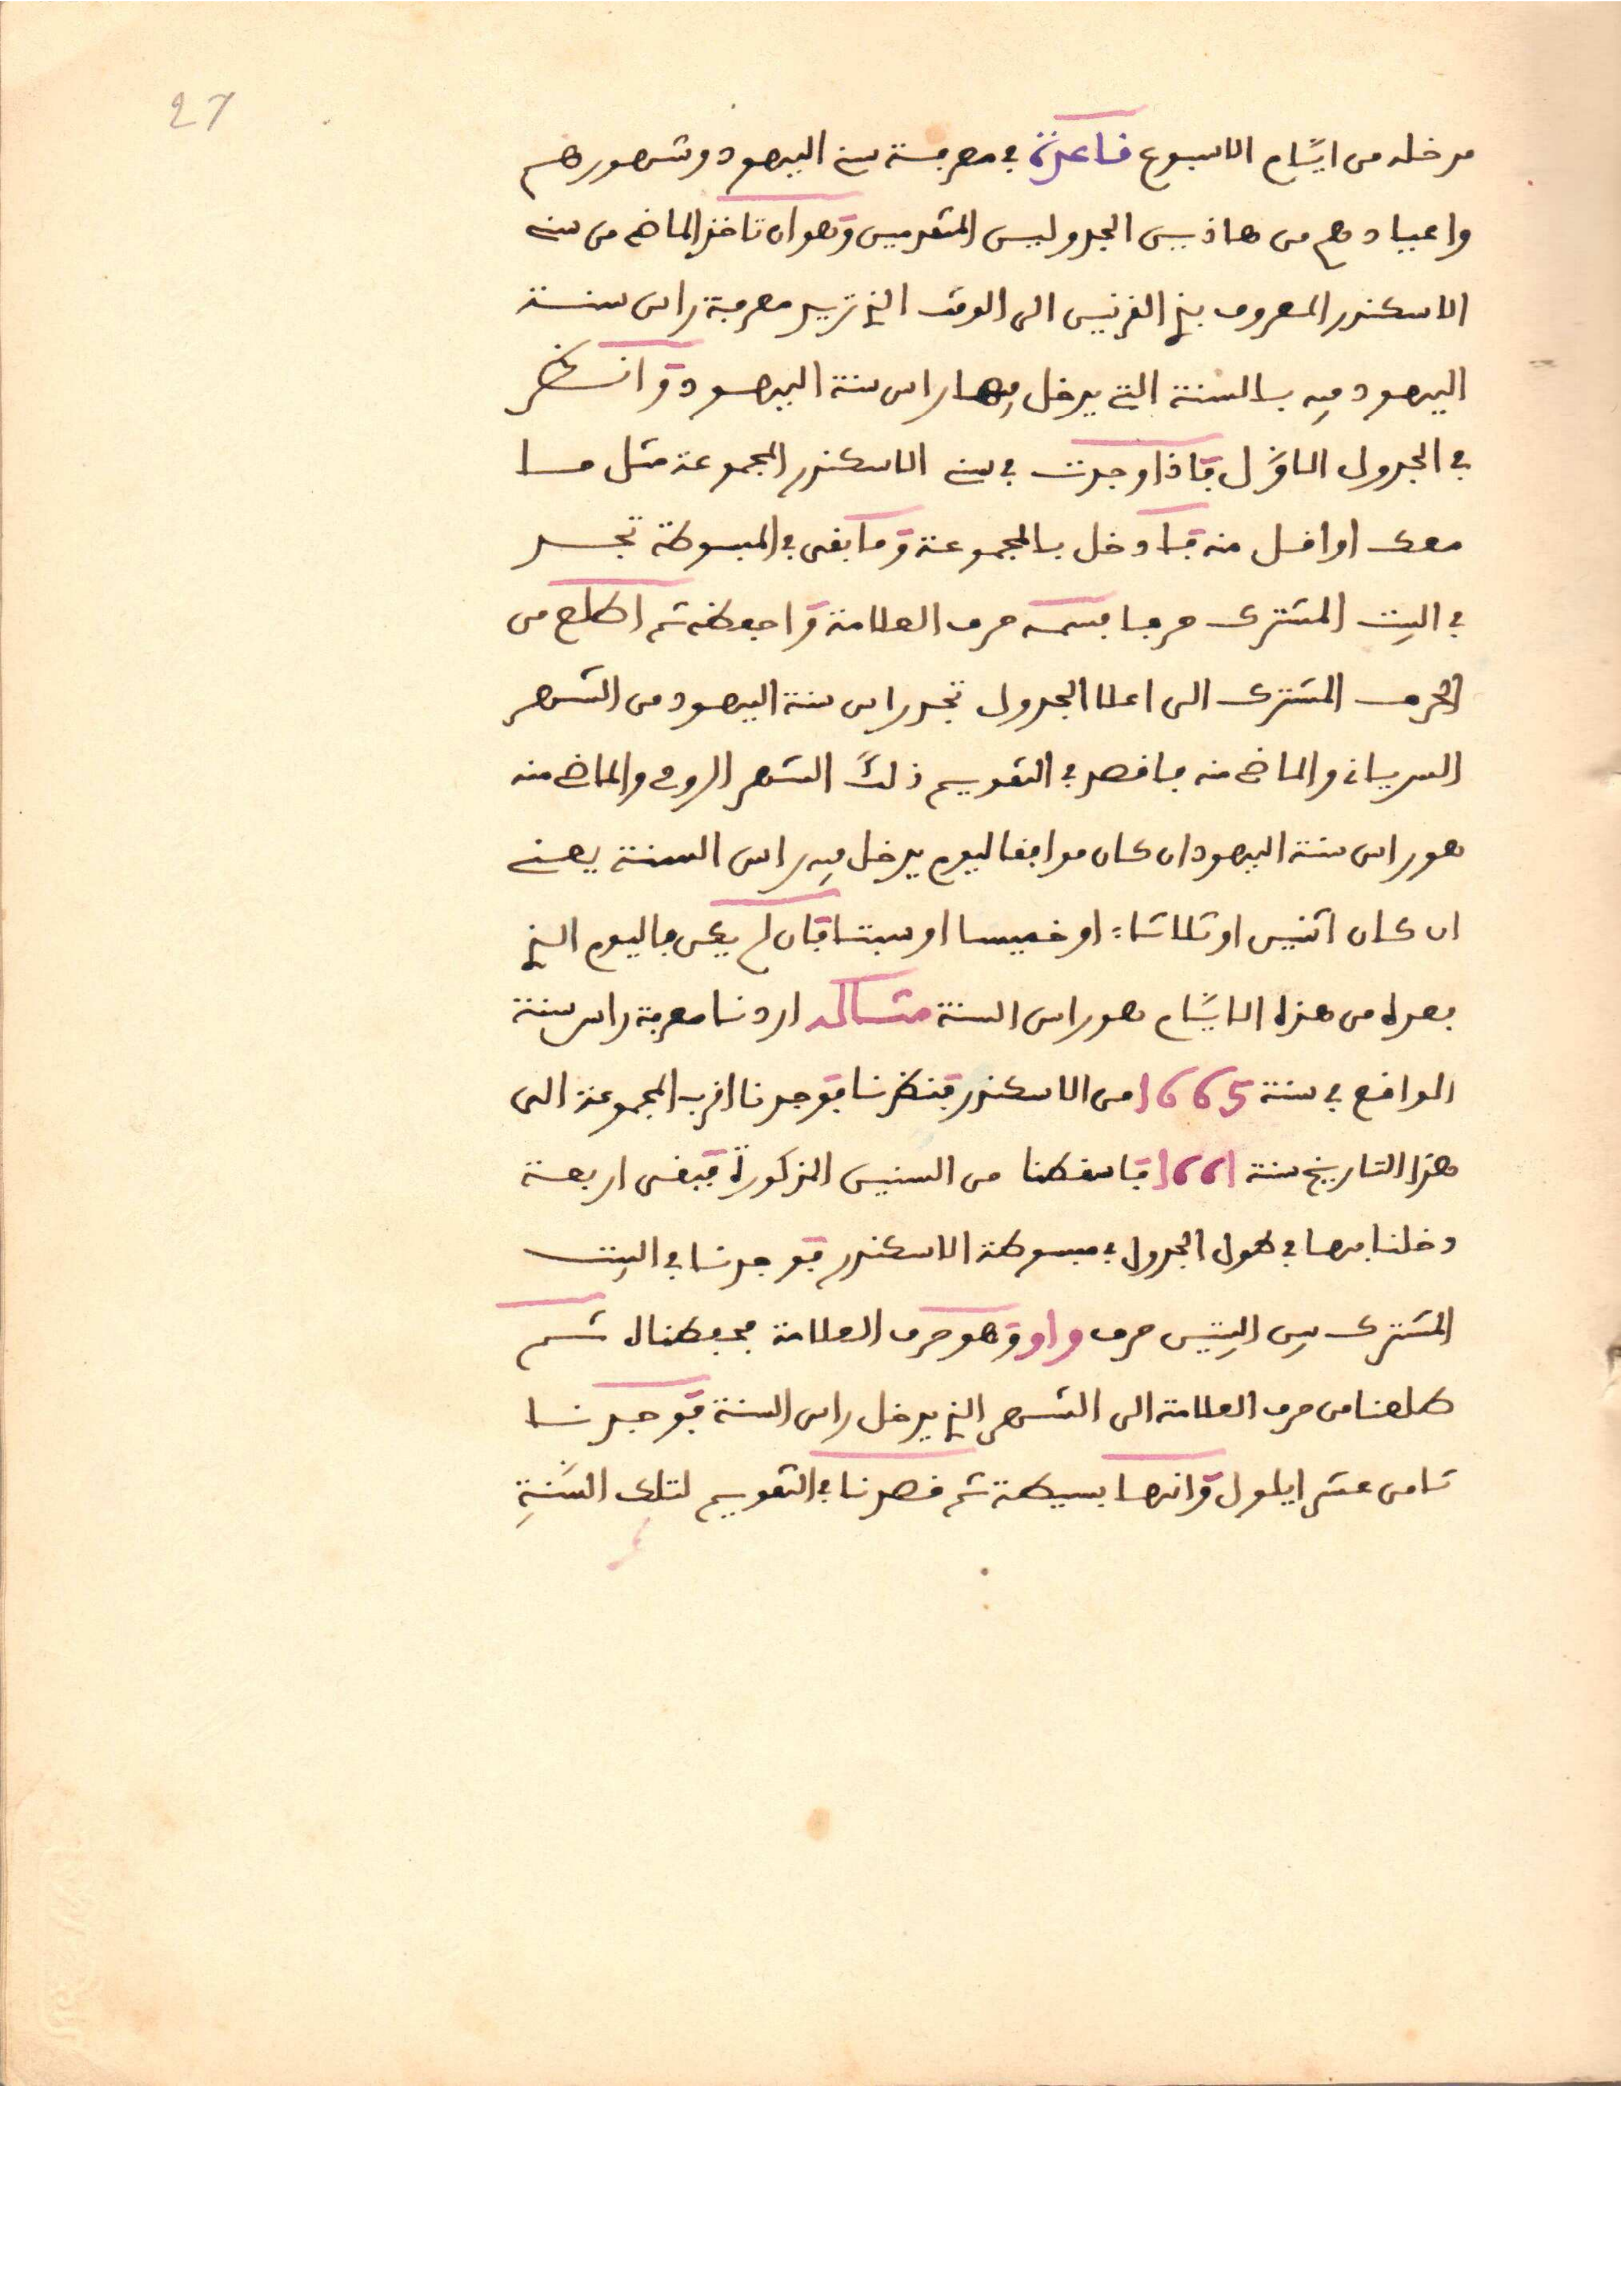 27
مدخله من ايّام الاسبوع فاعدة في معرفة سني اليهود وشهورهم
واعيادهم من هاذين الجدولين المتقدمين وهو ان تاخذ الماضي من سني
الاسكندر المعروف بذي القرنين الى الوقت الذي تريد معرفة راس سنة
اليهود فيه بالسنة التي يدخل فيها راس سنة اليهود وانظر
في الجدول الاوّل فاذا وجدت في سني الاسكندر المجموعة مثل ما
معك او اقل منه فادخل بالمجموعة وما بقى في المبسوطة تجد
في البيت المشترك حرفا فسمه حرف العلامة واحفظه ثم اطلع من
الحرف المشترك الى اعلا الجدول تجد راس سنة اليهود من الشهر
السرياني والماضي منه فاقصد في التقويم ذلك الشهر الرومي والماضي منه
هو راس سنة اليهود ان كان موافقا ليوم يدخل فيه راس السنة يعني
ان كان اثنين او ثلاثاء او خميسا او سبتا فان لم يكن فاليوم الذي
بعده من هذه الايّام هو راس السنة مثاله اردنا معرفة راس سنة
الواقع في سنة 1665 من الاسكندر فنظرنا فوجدنا اقرب المجموعة الى
هذا التاريخ سنة 1661 فاسقطنا من السنين المذكورة فبقى اربعة
دخلنا بها في طول الجدول في مبسوطة الاسكندر فوجدنا في البيت
المشترك بين البيتين حرف واو وهو حرف العلامة فحفظناه ثم
طلعنا من حرف العلامة الى الشهر الذي يدخل راس السنة فوجدنا
ثامن عشر ايلول وانها بسيطة ثم قصدنا في التقويم لتلك السَّنةِ